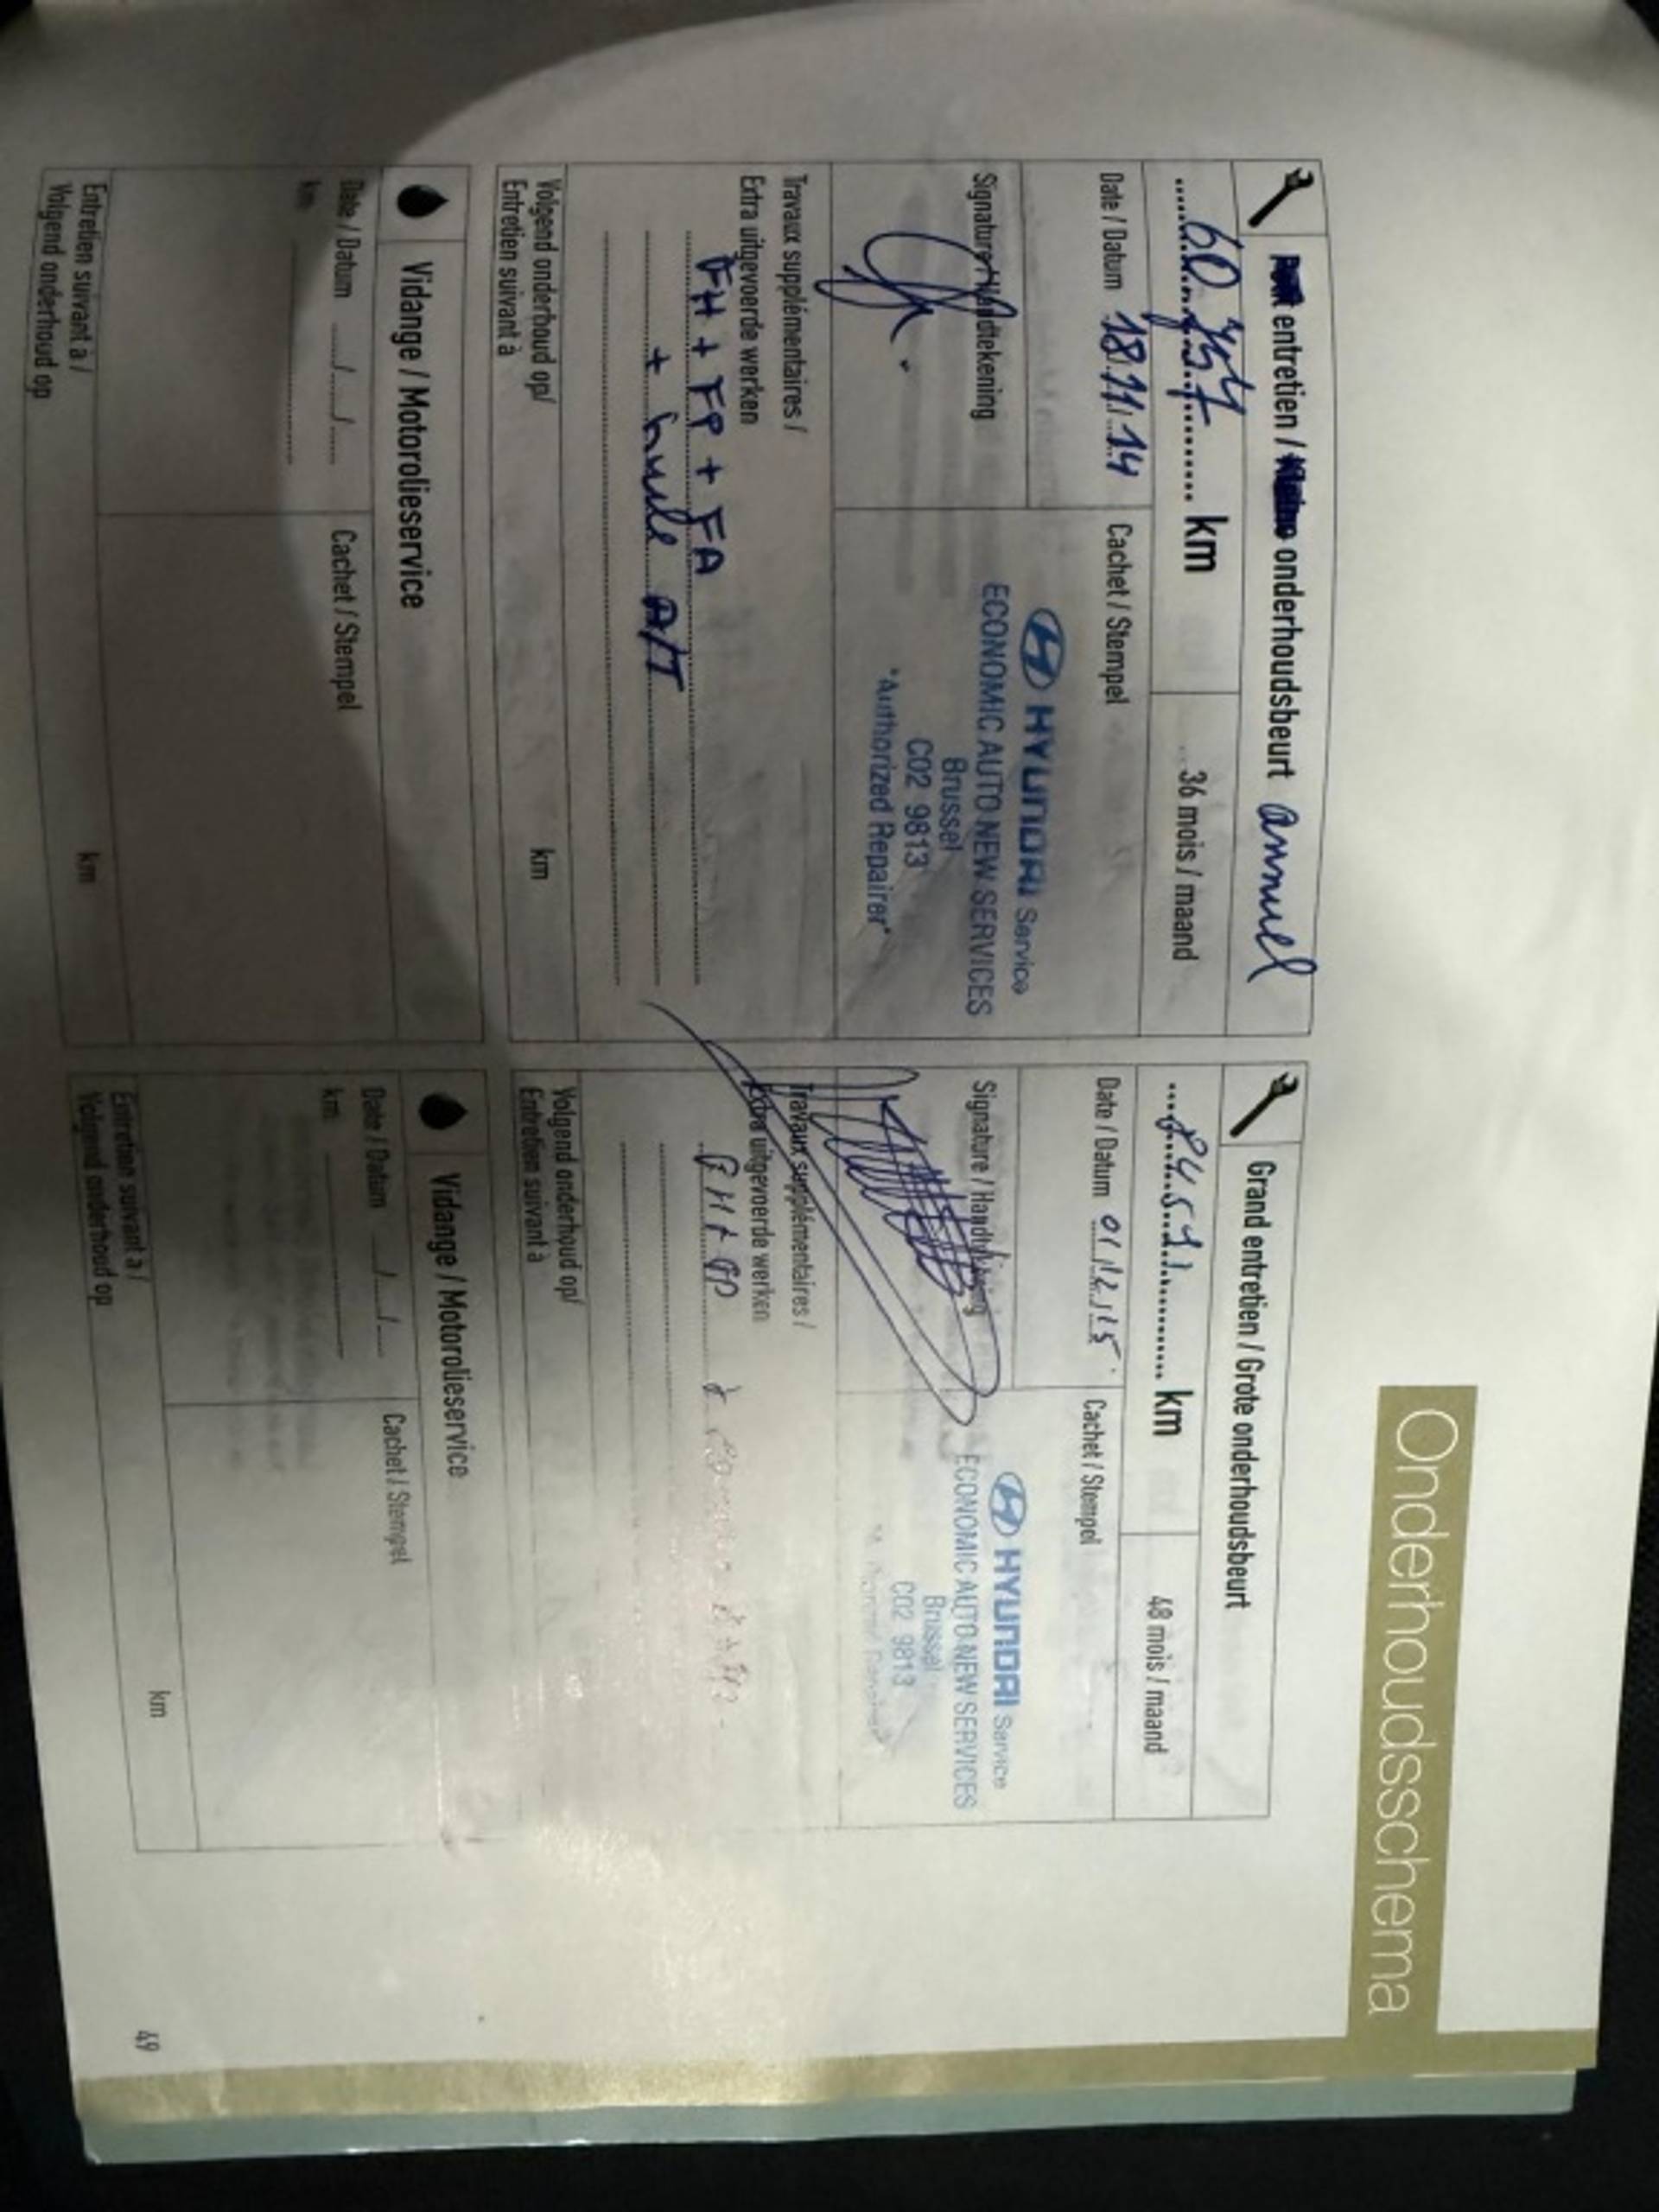 Onderhoudsschema
entretien / onderhoudsbeurt annuel
km
36 mois / maand
Date / Datum 18/11/14
Cachet / Stempel
HYUNDAI Service
ECONOMIC AUTO NEW SERVICES
Brussel
C02 9813
"Authorized Repairer"
Signature / Handtekening
Travaux supplémentaires /
Extra uitgevoerde werken
FH + FP + FA
+ huile A/T
Volgend onderhoud op/
Entretien suivant à
km
Vidange / Motorolieservice
Date / Datum ..../..../....
Cachet / Stempel
km
Entretien suivant à /
Volgend onderhoud op
km
Grand entretien / Grote onderhoudsbeurt
km
48 mois / maand
Date / Datum 01/12/15
Cachet / Stempel
HYUNDAI Service
ECONOMIC AUTO NEW SERVICES
Brussel
C02 9813
Signature / Handtekening
Travaux supplémentaires /
Extra uitgevoerde werken
Volgend onderhoud op/
Entretien suivant à
Vidange / Motorolieservice
Date / Datum ..../..../....
Cachet / Stempel
km
Entretien suivant à /
Volgend onderhoud op
km
49